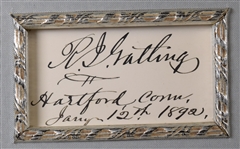 R. J. Gatling
Hartford Conn,
Jany 12th 1892.